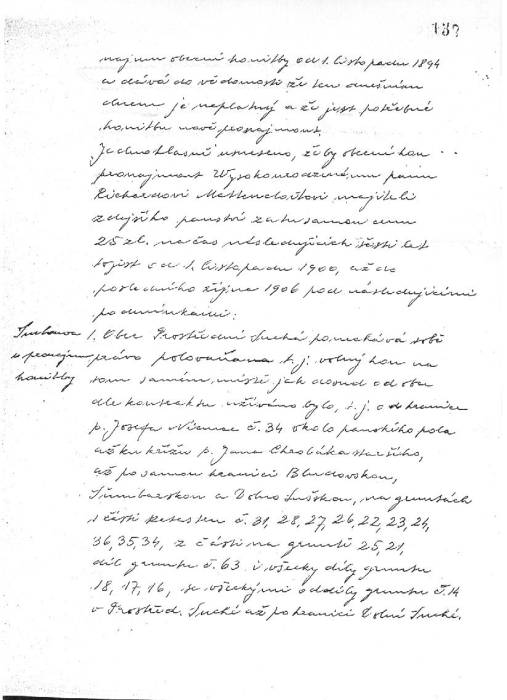 132
najum obecní honitby od 1. listopadu 1894
a dává do vědomosti že ten dnešním
dnem je neplatný a že jest potřebné
honitbu nově pronajmout.
Jednohlasně usneseno, žeby obecní hon
pronajmout Vysokourozenému panu
Richardovi Mattencloitovi majiteli
zdejšího panství za tu samou cenu
25 zl. na čas následujících šesti let
to jest od 1. listopadu 1900, až do
posledního října 1906 pod následujícími
podmínkami:
Smlouva
o pronájm
honitby
1. Obec Prostřední Suchá ponechává sobě
právo polovačna t. j. volný hon na
tom samém místě jak dosud od obce
dle kontraktu užíváno bylo, t. j. od hranice
p. Josefa Němce č. 34 okolo panského pola
až ku křížu p. Jana Chrobáka staršího,
až po samou hranici Bludovskou,
Šumbarskou a Dolno Sušskou, na gruntách
s části č. 31, 28, 27, 26, 22, 23, 24,
36, 35, 34, z části na gruntě 25, 21,
díl gruntu č. 63 i všecky díly gruntu
18, 17, 16, se všeckými oddíly gruntu č. 14
v Prostřed. Suché až po hranici Dolní Suché.